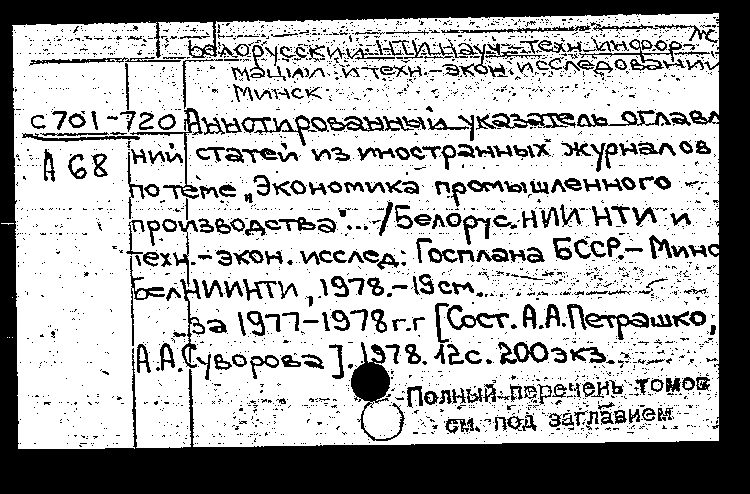 Белорусский НТИ науч.-техн. инфор-
мации и техн.-экон. исследований
Минск.
с701-720 Аннотированный указатель оглавл
А 68 ний статей из иностранных журналов
по теме „Экономика промышленного
производства"... /Белорус. НИИ НТИ и
техн.-экон. исслед. Госплана БССР.- Минс
БелНИИНТИ, 1978.-19см.
за 1977-1978г.г [Сост. А.А.Петрашко,
А.А.Суворова]. 1978. 12с. 200экз.
Полный перечень томов
см. под заглавием